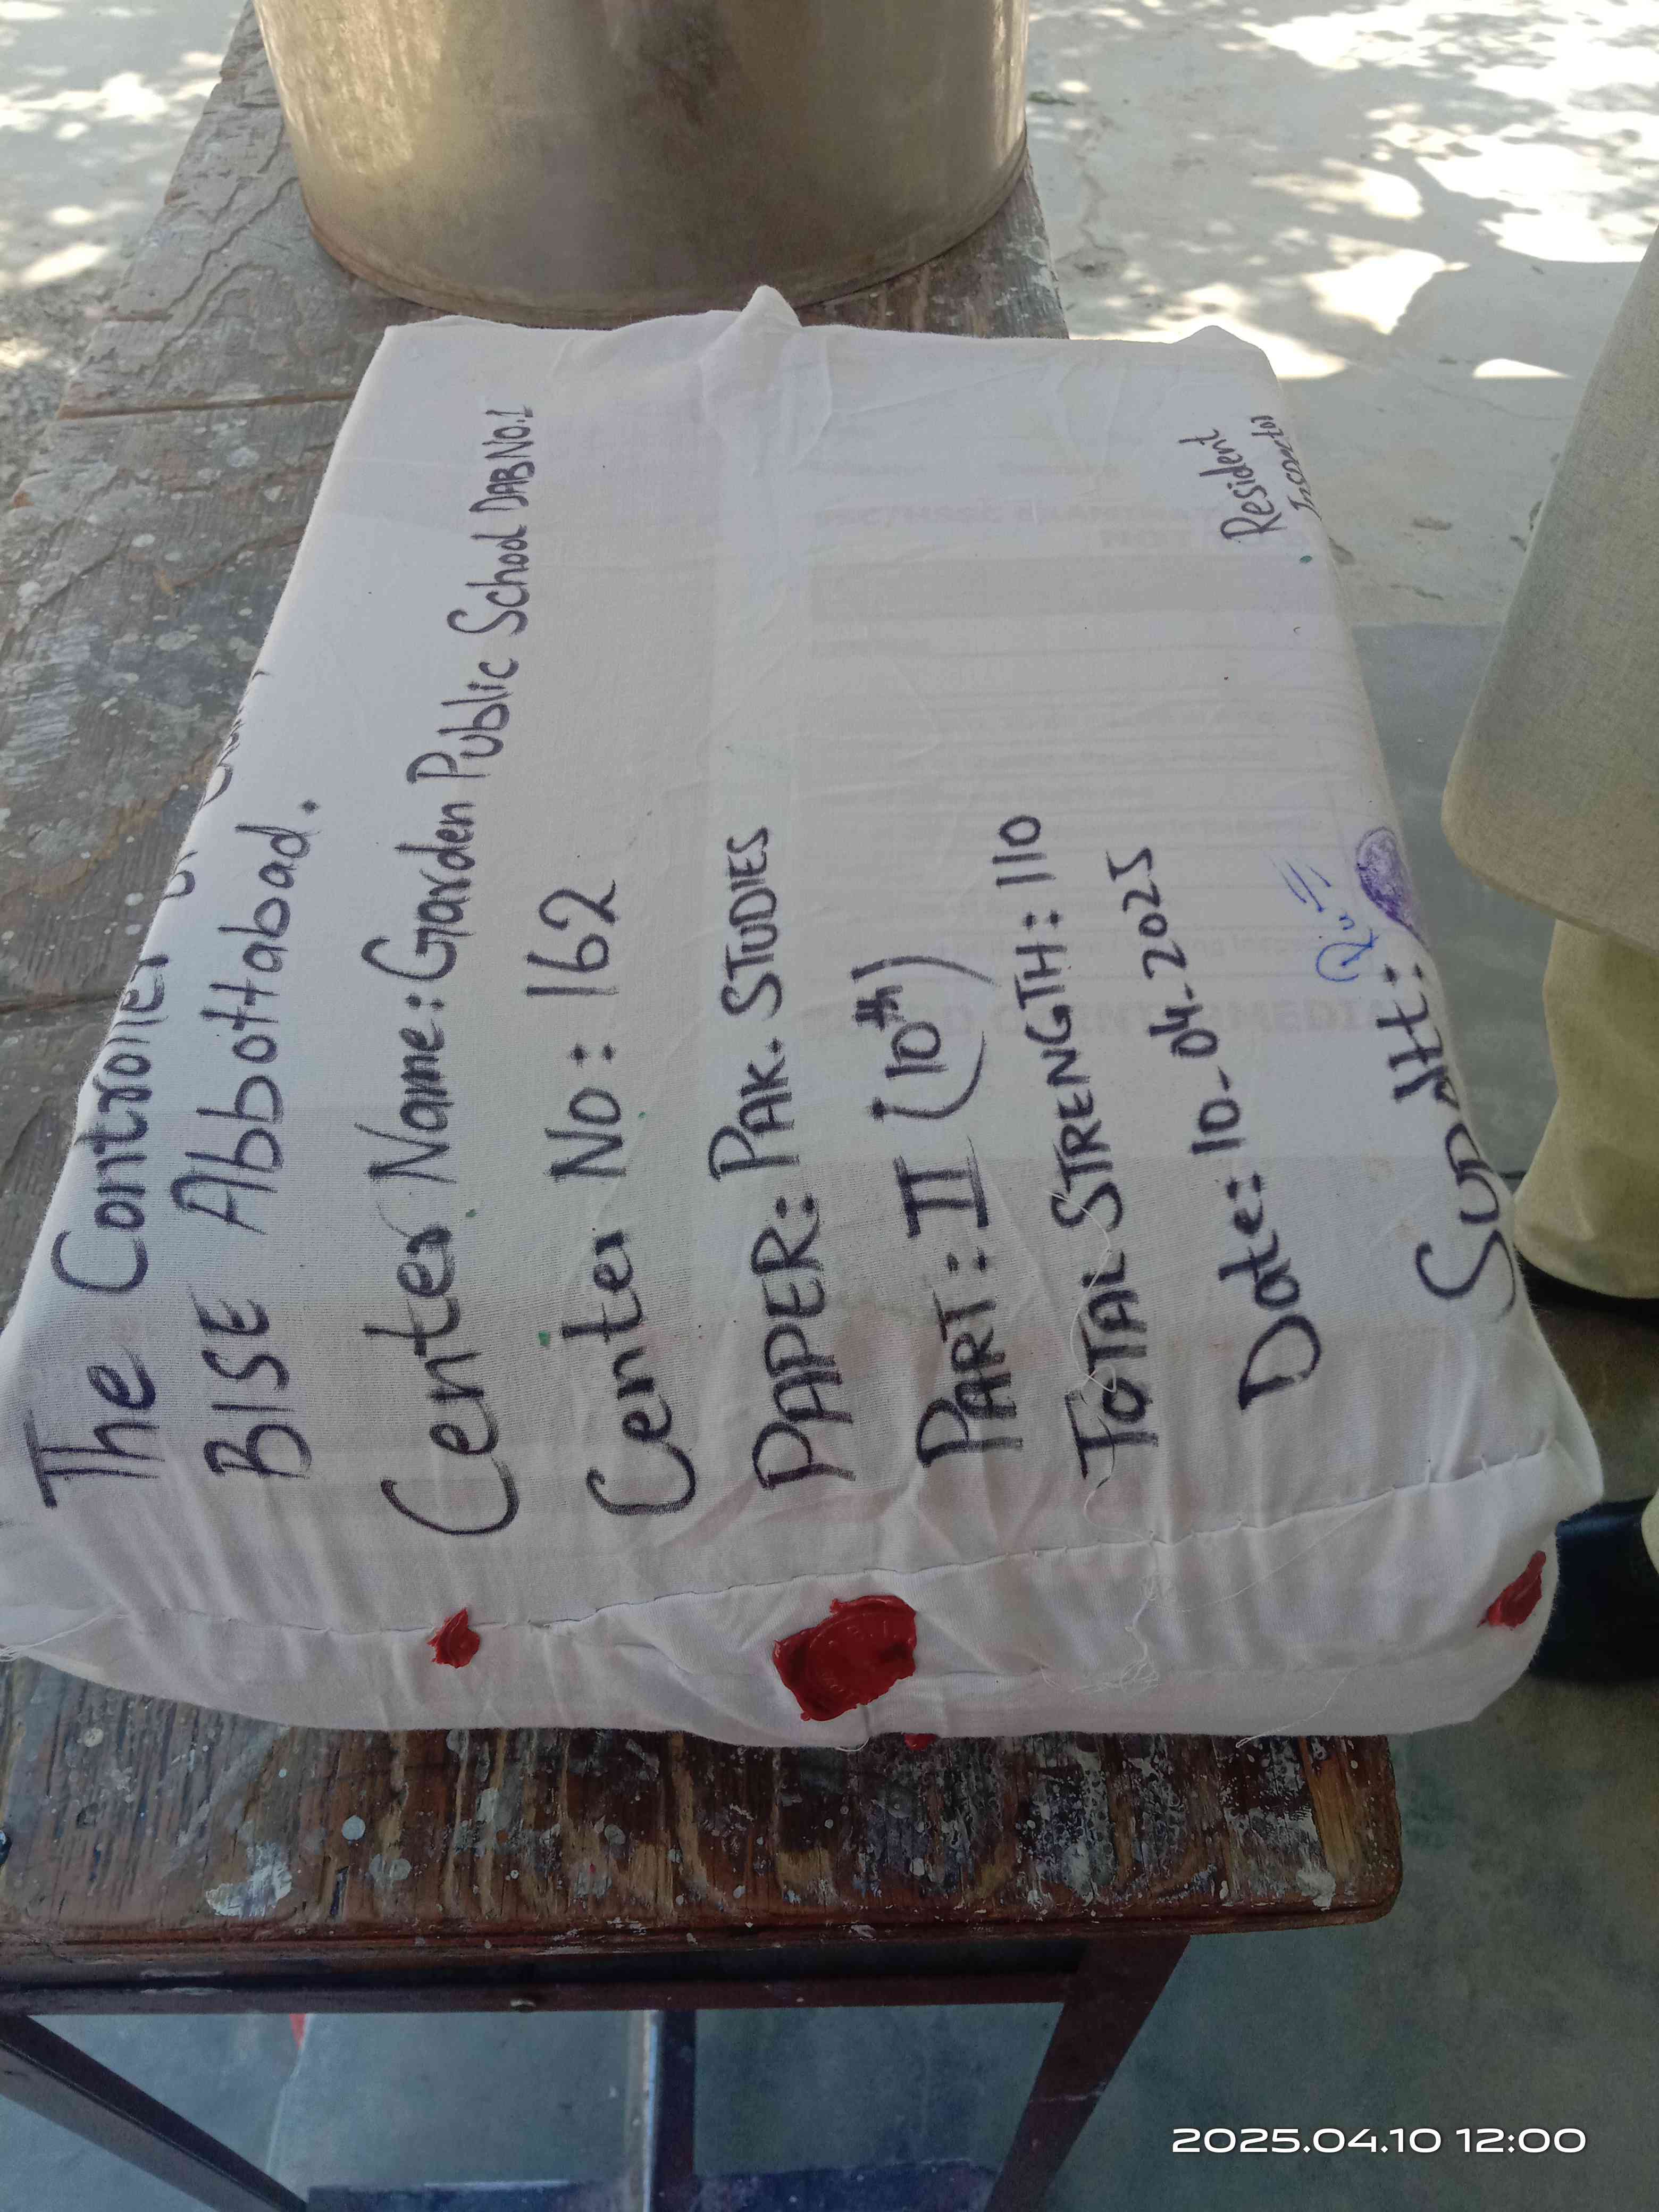 The Controller
BISE Abbottabad.
Center Name: Garden Public School DABNO.1
Center No: 162
PAPER: PAK. STUDIES
PART: II (10th)
TOTAL STRENGTH: 110
Date: 10-04-2025
Supdtt:
Resident
Inspector
2025.04.10 12:00